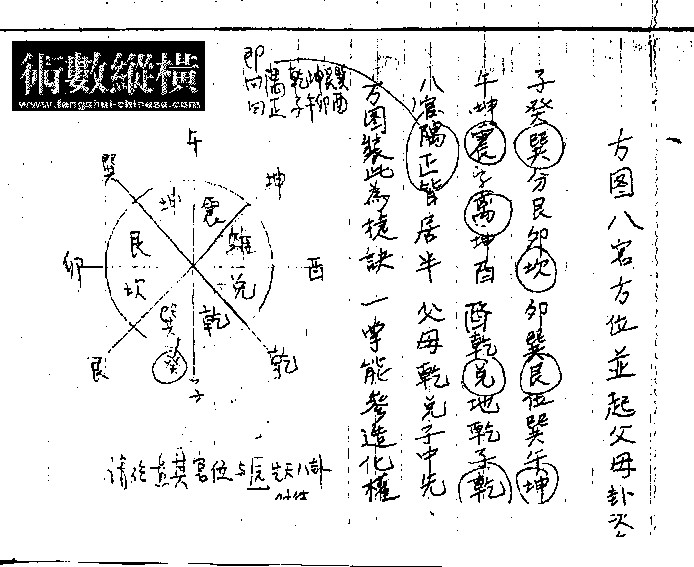 方图八宫方位並起父母卦姿
子癸巽分艮卯坎 卯巽艮位巽午坤
午坤震子离坤酉 酉乾兑地乾子乾
八宫隅正皆居半 父母乾兑子中先、
方图装此為捷訣 一掌能參造化權
即向隅 乾坤艮巽
向正 子午卯酉
術數縱橫
www.fengshui-chinese.com
午
巽
坤
坤
震
艮
離
卯
酉
坎
兑
巽
乾
艮
癸
乾
子
宫位与
先天八卦